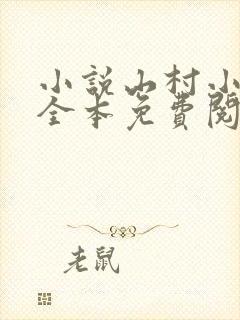 小説山村小
全本免費閱
老鼠